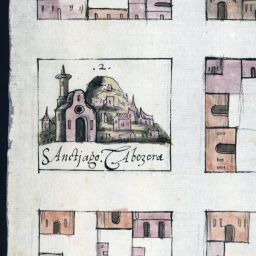 .2.
SAnctjago. TAbozora